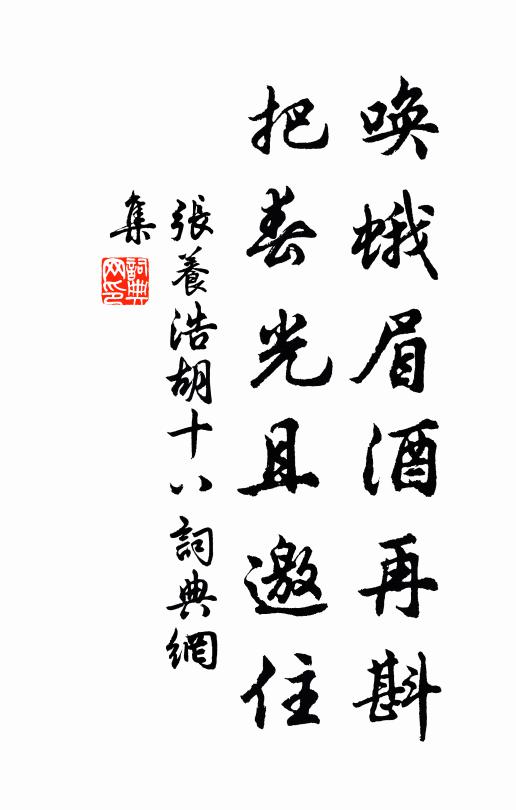 喚蛾眉酒再斟
把春光且邀住
張養浩胡十八詞典網
集
詞典網印